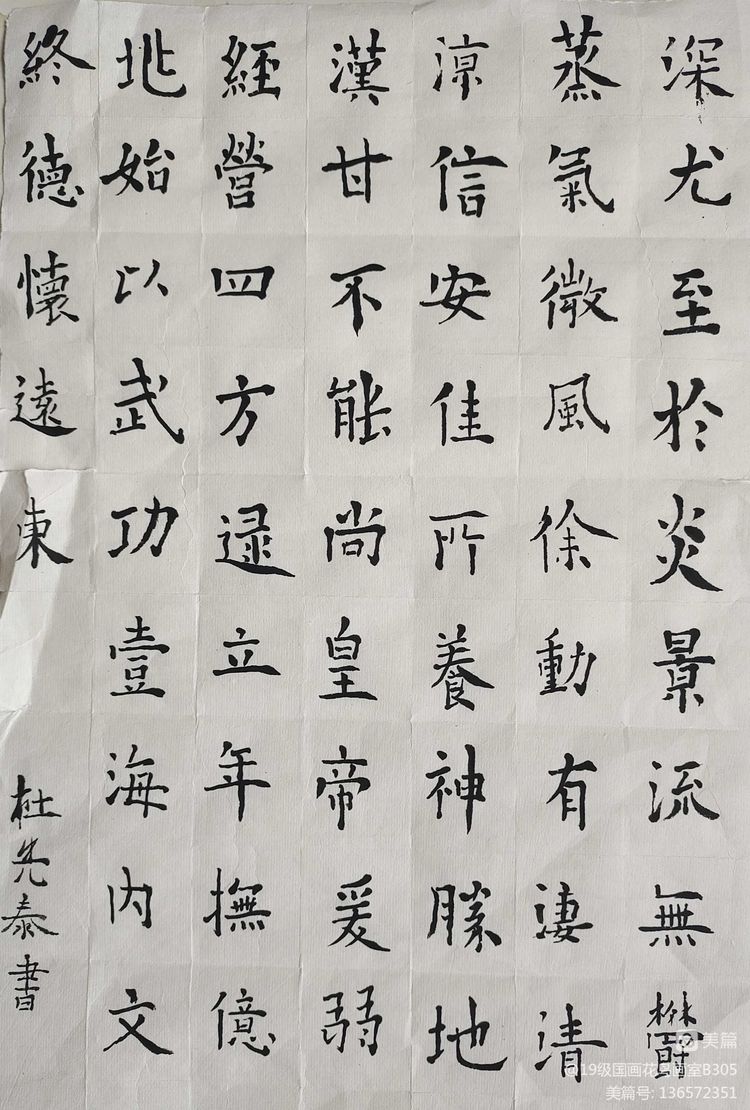 深尤至於炎景流無鬱
蒸氣微風徐動有淒清
涼信安佳所養神勝地
漢甘不能尚皇帝爰弱
經營四方逮立年撫億
兆始以武功壹海内文
終德懷遠東
杜先泰書
美篇
@19级国画花鸟画室B305
美篇号: 136572351